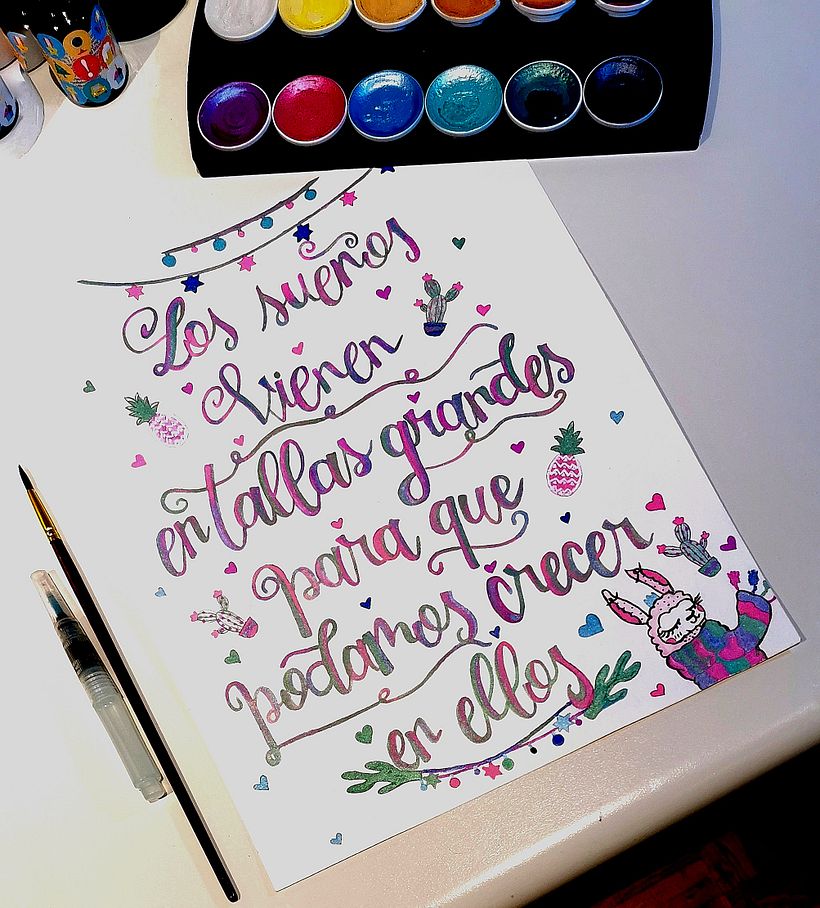 Los sueños
vienen
en tallas grandes
para que
podamos crecer
en ellos